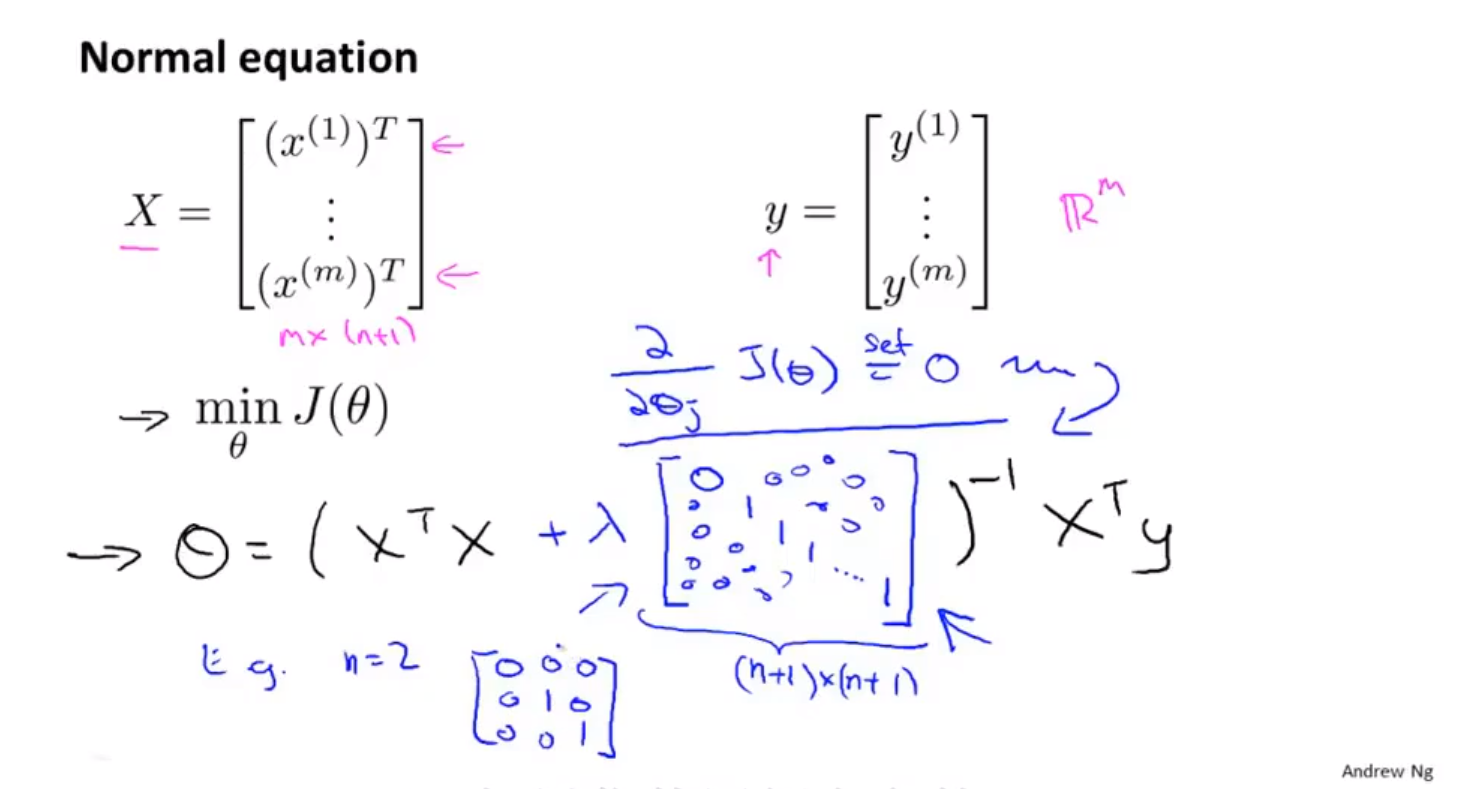 Normal equation
X = [ (x^(1))^T ⋮ (x^(m))^T ] ← ←
m × (n+1)
y = [ y^(1) ⋮ y^(m) ] ℝ^m
↑
∂/∂θj J(θ) set = 0
→ min_θ J(θ)
→ θ = ( X^T X + λ [ 0 0 0 0 0 1 0 0 1 0 0 1 0 0 1 ] )^-1 X^T y
(n+1)×(n+1)
E.g. n=2 [ 0 0 0
0 1 0
0 0 1 ]
Andrew Ng